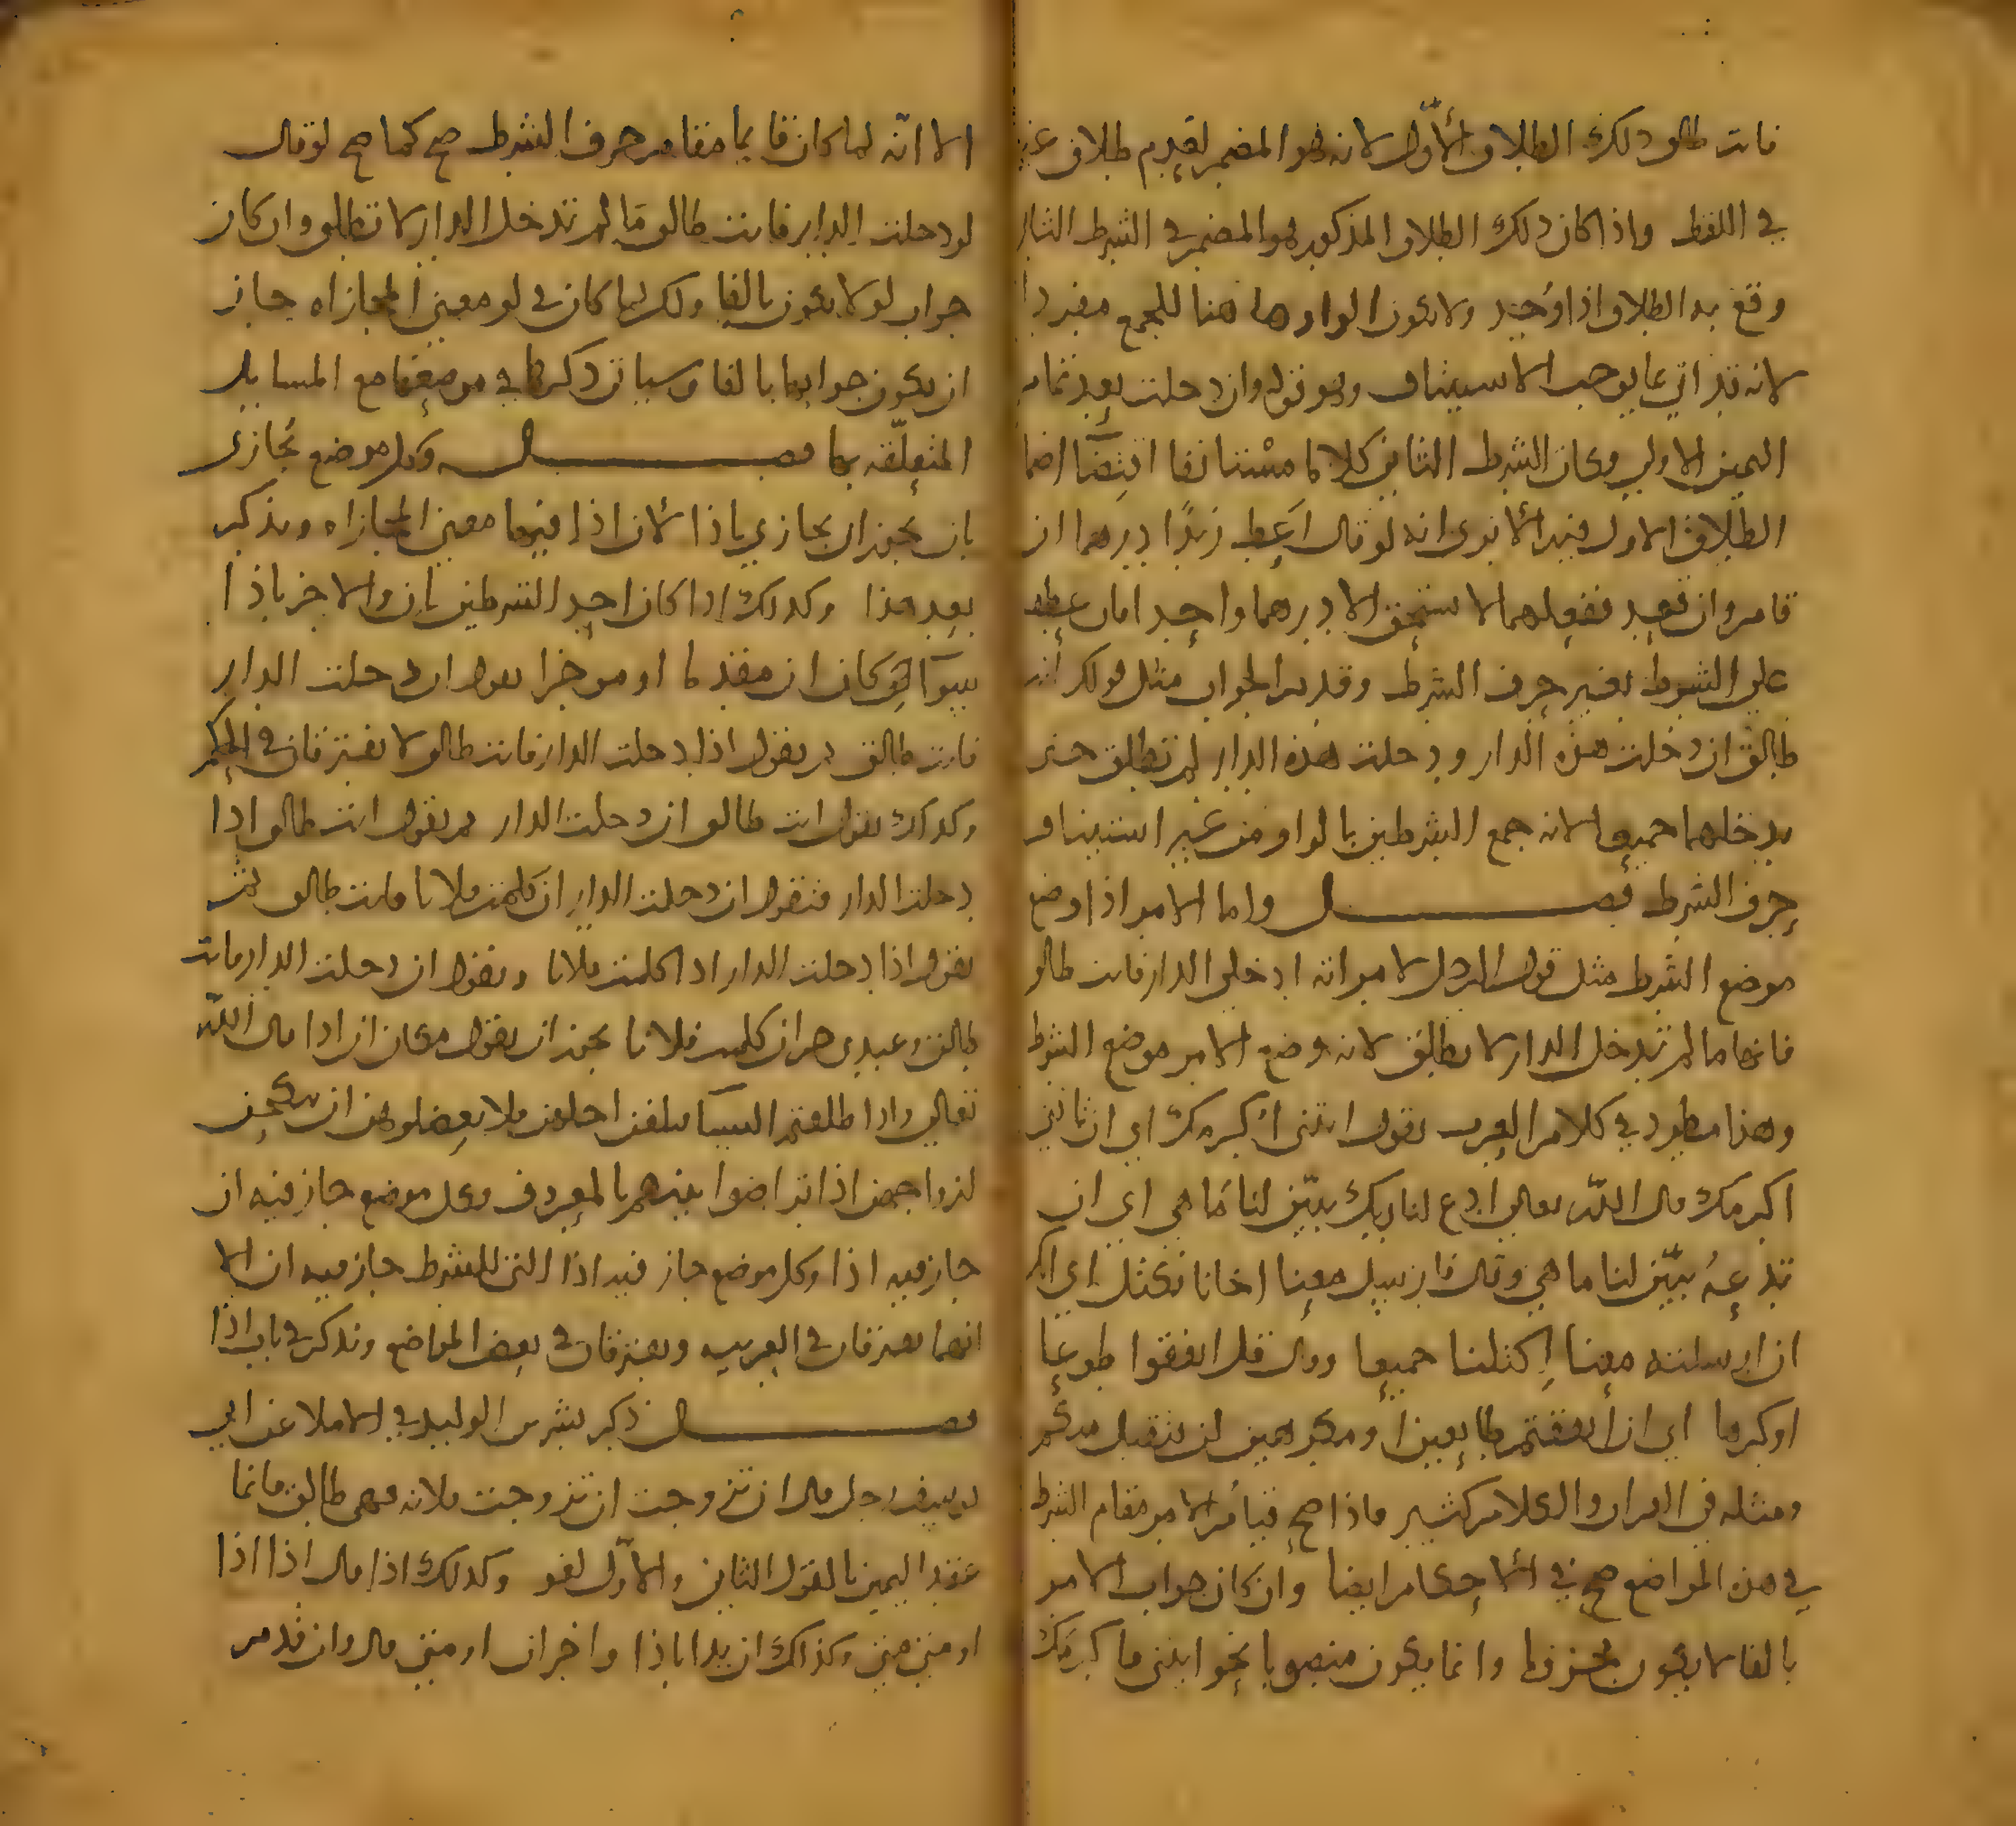 فانت طالق ذلك الطلاق الأوّل لانه هو المضمر لعدم طلاق غيره
في اللفظ واذا كان ذلك الطلاق المذكور هو المضمر في الشرط الثاني
وقع به الطلاق اذا وُجد ولا يكون الواو ها هنا للجمع مفردا
لانه قد اتي بما يوجب الاستيناف وهو قوله وان دخلت بعد تمام
اليمين الاولى وكان الشرط الثاني كلاما مستانفا اقتضا اضمار
الطلاق الاول فيه ألا ترى انه لو قال اعط زيدًا درهما ان
قام وان قعد ففعلهما لا يستحق الا درهما واحدا
على الشرط بغير حرف الشرط وقدم الجواب مثل قولك أنت
طالق ان دخلت هذه الدار ودخلت هذه الدار لم تطلق حتى
تدخلهما جميعا لانه جمع الشرطين بالواو من غير استيناف
حرف الشرط فصل واما الامر اذا وضع
موضع الشرط مثل قول الرجل لامراته ادخلي الدار فانت طالق
فانها ما لم تدخل الدار لا تطلق لانه وضع الامر موضع الشرط
وهذا مطرد في كلام العرب تقول ائتني اكرمك اي ان تاتني
اكرمك قال الله تعالى ادع لنا ربك يبيّن لنا ما هي اي ان
تدعهُ يبيّن لنا ما هي وقال فارسل معنا اخانا نكتل اي انك
ان ارسلته معنا اكتلنا جميعا وقال قل انفقوا طوعا
او كرها اي ان انفقتم طايعين او مكرهين لن يتقبل منكم
ومثله في القران والكلام كثير فاذا صح قيام الامر مقام الشرط
في هذه المواضع صح في الاحكام ايضا وان كان جواب الامر
بالفا لا يكون مجزوما وانما يكون منصوبا نحو ايتني فاكرمَك
الا انّه لما كان قايما مقام حرف الشرط صح كما صح لو قال
لو دخلت الدار فانت طالق ما لم تدخل الدار لا تطلق وان كان
جواب لو لا يكون بالفا ولكن لما كان في لو معنى المجازاه جاز
ان يكون جوابها بالفا وسياتي ذكرها في موضعها مع المسايل
المتعلّقه بها فصل وكل موضع يُجازى
بان يجوز ان يجازي باذا لأن اذا فيها معنى المجازاه ويذكر
بعد هذا وكذلك اذا كان احد الشرطين بان والاخر باذا
سوآ كان ان مقدما او موخرا يقول ان دخلت الدار
فانت طالق ثم يقول اذا دخلت الدار فانت طالق لا يفترقان في الحكم
وكذلك يقول انت طالق ان دخلت الدار ثم يقول انت طالق اذا
دخلت الدار فتقول ان دخلت الدار ان كلمت فلانا فانت طالق ثم
يقول اذا دخلت الدار اذا كلمت فلانا ويقول ان دخلت الدار فانت
طالق وعبدي حر ان كلمت فلانا يجوز ان يقول مكان ان اذا قال اللّه
تعالى واذا طلقتم النسا فبلغن اجلهن فلا تعضلوهن ان ينكحن
ازواجهن اذا تراضوا بينهم بالمعروف وكل موضع جاز فيه ان
جاز فيه اذا وكل موضع جاز فيه اذا التي للشرط جاز فيه ان الا
انهما يفترقان في العربيه ويفترقان في بعض المواضع ونذكر في باب اذا
فصل ذكر بشر بن الوليد في الاملا عن ابي
يوسف رجل قال ان تزوجت ان تزوجت فلانه فهي طالق فانما
عقد اليمين بالقول الثاني والاوّل لغو وكذلك اذا قال اذا اذا
او متى متى وكذلك ان بدا باذا واخر ان او متى قال وان قدم